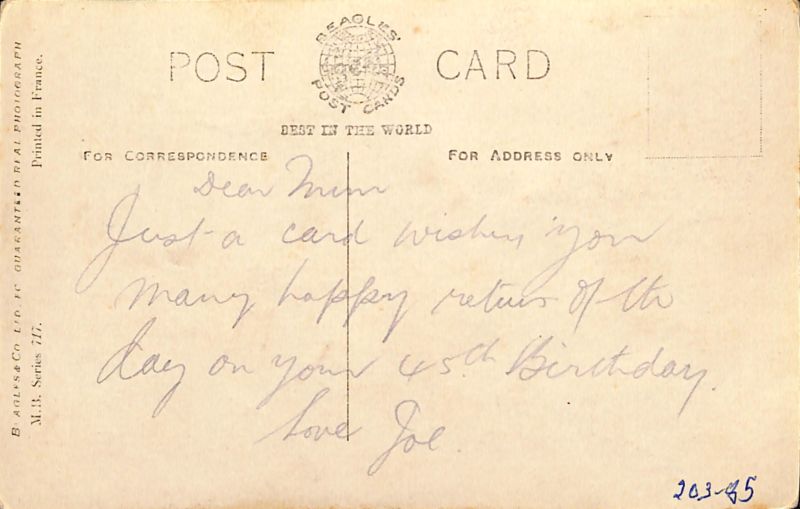 POST CARD
BEAGLES'
POST CARDS
BEST IN THE WORLD
FOR CORRESPONDENCE
FOR ADDRESS ONLY
Dear Mum
Just a card wishing you
Many happy return of th
day on your 45th Birthday.
Love Joe
BEAGLES & CO. LTD. EC GUARANTEED REAL PHOTOGRAPH
Printed in France.
M.B. Series 717.